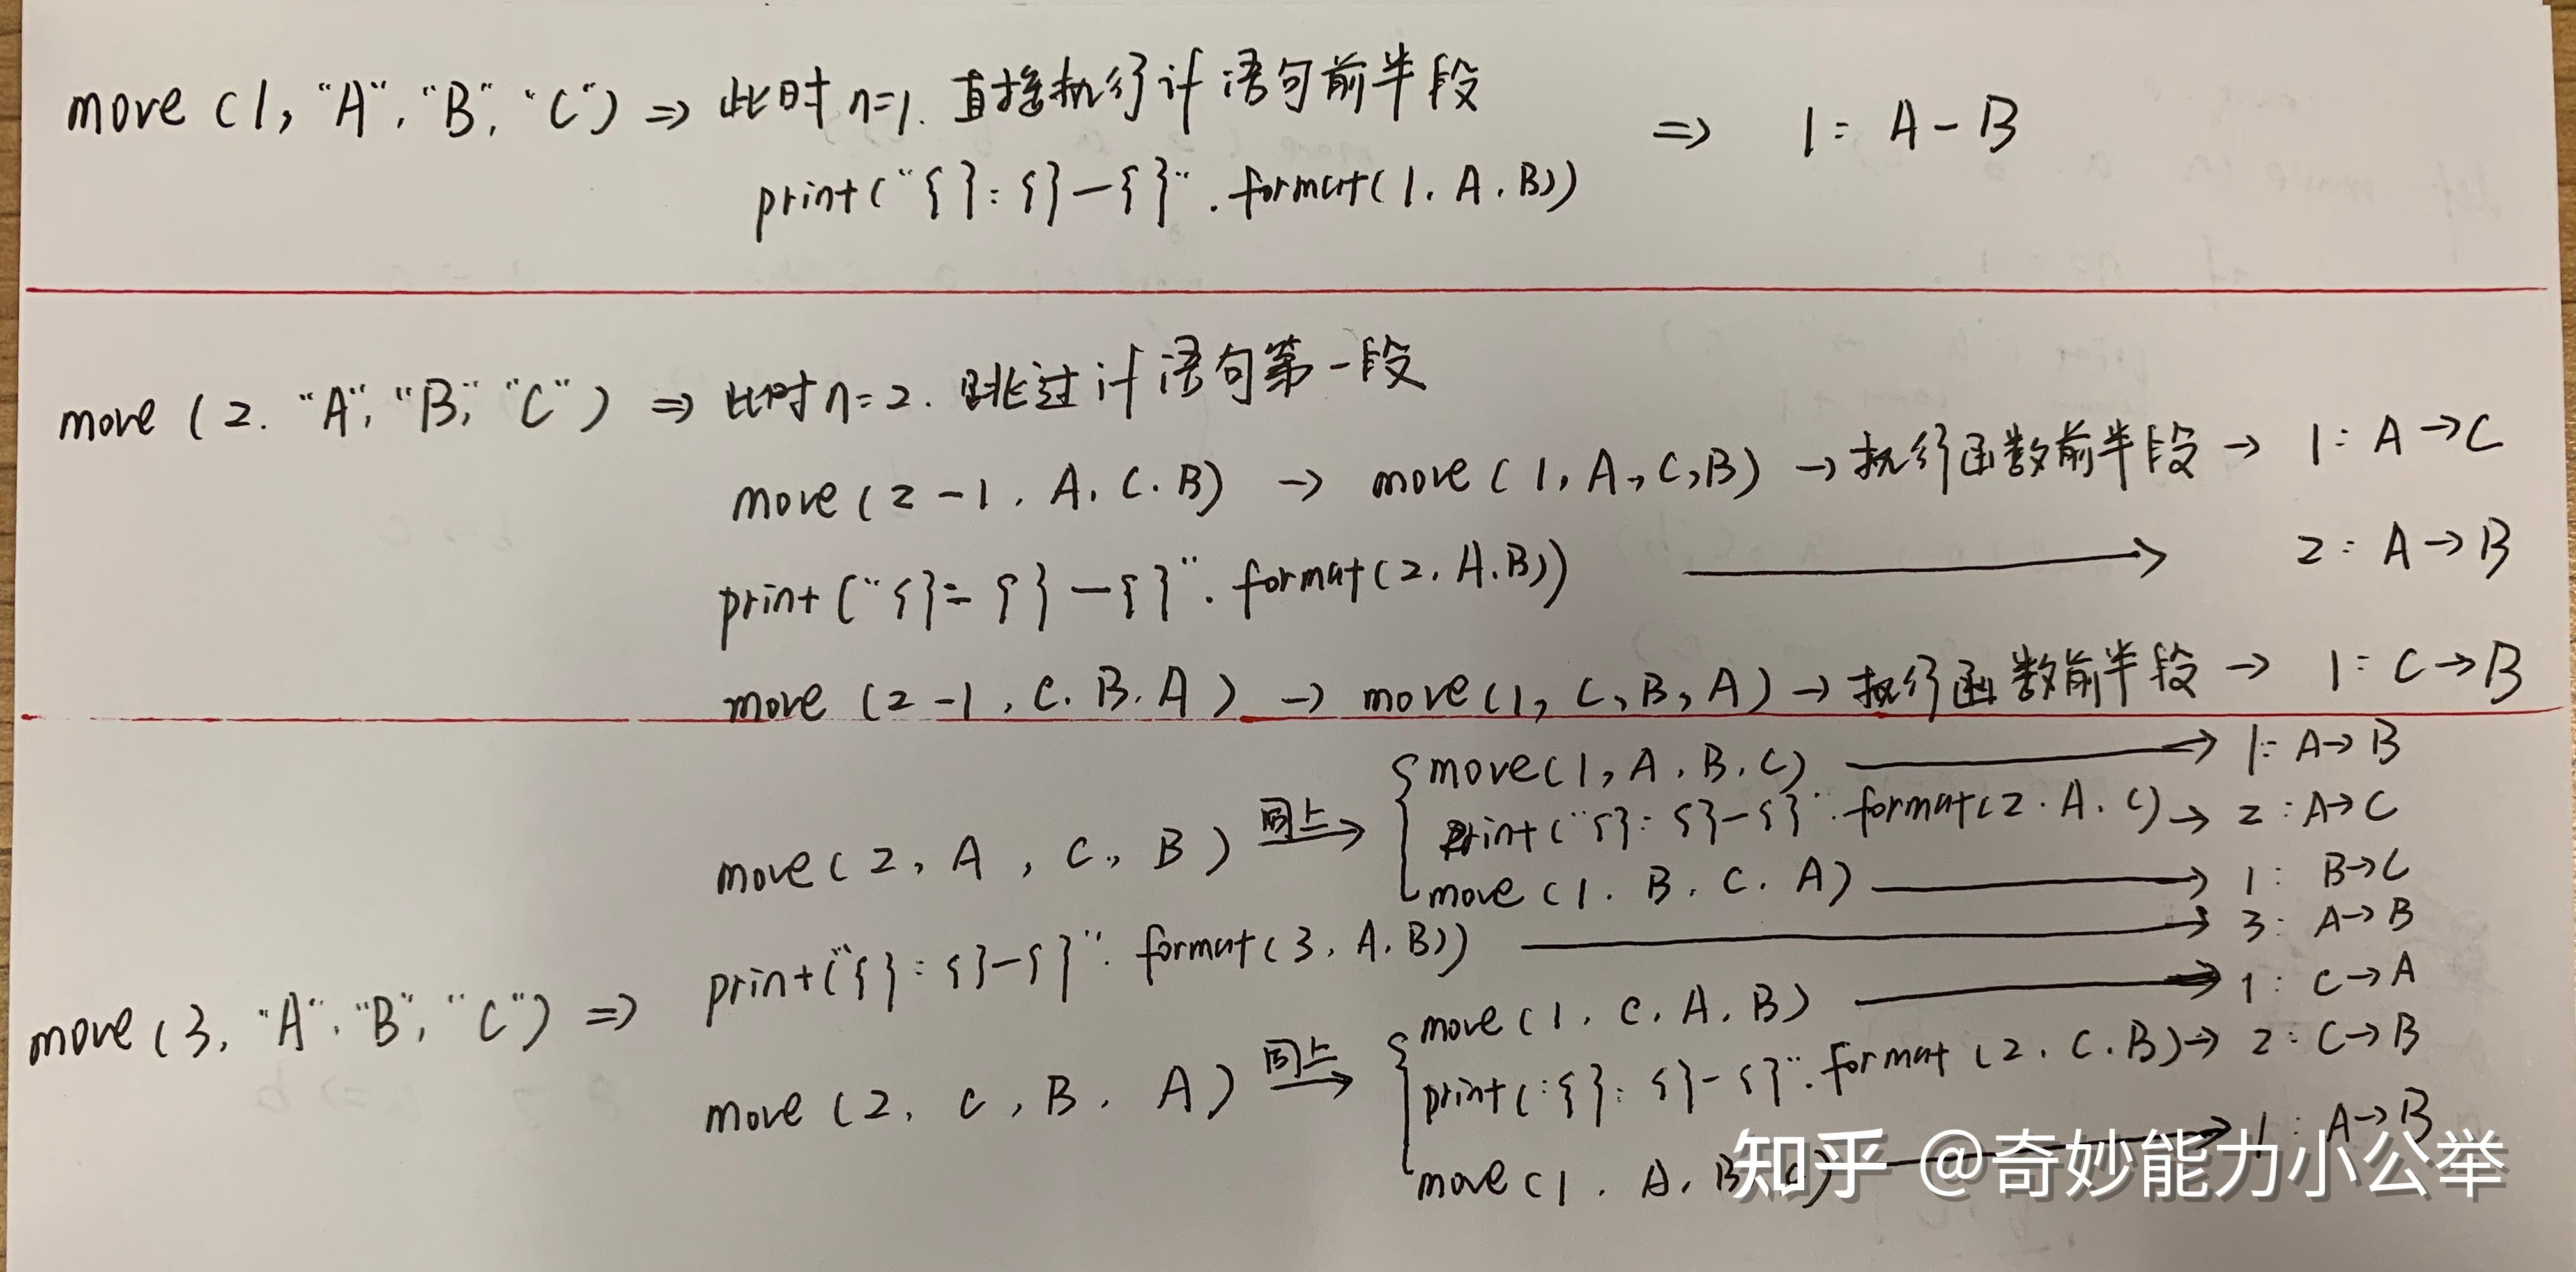 move (1, "A", "B", "C") => 此时 n=1. 直接执行 if 语句前半段
print("{}: {}-{}".format(1. A. B)) => 1: A-B
move (2. "A", "B", "C") => 此时 n=2. 跳过 if 语句第一段
move (2-1, A, C. B) → move (1, A, C, B) → 执行函数前半段 → 1: A→C
print("{}: {}-{}".format(2. A.B)) → 2: A→B
move (2-1, C. B. A) → move (1, C, B, A) → 执行函数前半段 → 1: C→B
move (1, A. B. C) → 1: A→B
move (2, A, C, B) 同上→ print("{}: {}-{}".format(2. A. C) → 2: A→C
move (1. B. C. A) → 1: B→C
print("{}: {}-{}".format(3. A. B)) → 3: A→B
move (3, "A", "B", "C") => move (1. C. A. B) → 1: C→A
move (2, C, B, A) 同上→ print("{}: {}-{}".format(2. C. B) → 2: C→B
move (1. A. B. C) → 1: A→B
知乎 @奇妙能力小公举